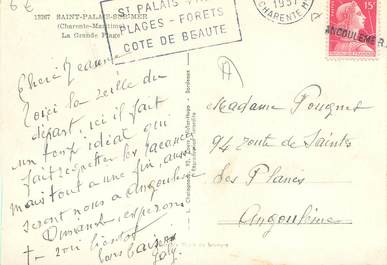 6€
13267 SAINT-PALAIS-SUR-MER
(Charente-Maritime)
La Grande Plage
ST PALAIS
PLAGES - FORETS
COTE DE BEAUTE
CHARENTE
15F
ANGOULEME R.
Chère Jeanne
Voici la veille du
départ, ici il fait
un temps idéal qui
fait regretter les vacances
mais tout a une fin, aussi
seront nous a Angoulême
Dimanche, espérons
vous bientôt
bons baisers
A
Madame Pougnet
94 route de Saintes
les Planes
Angoulême